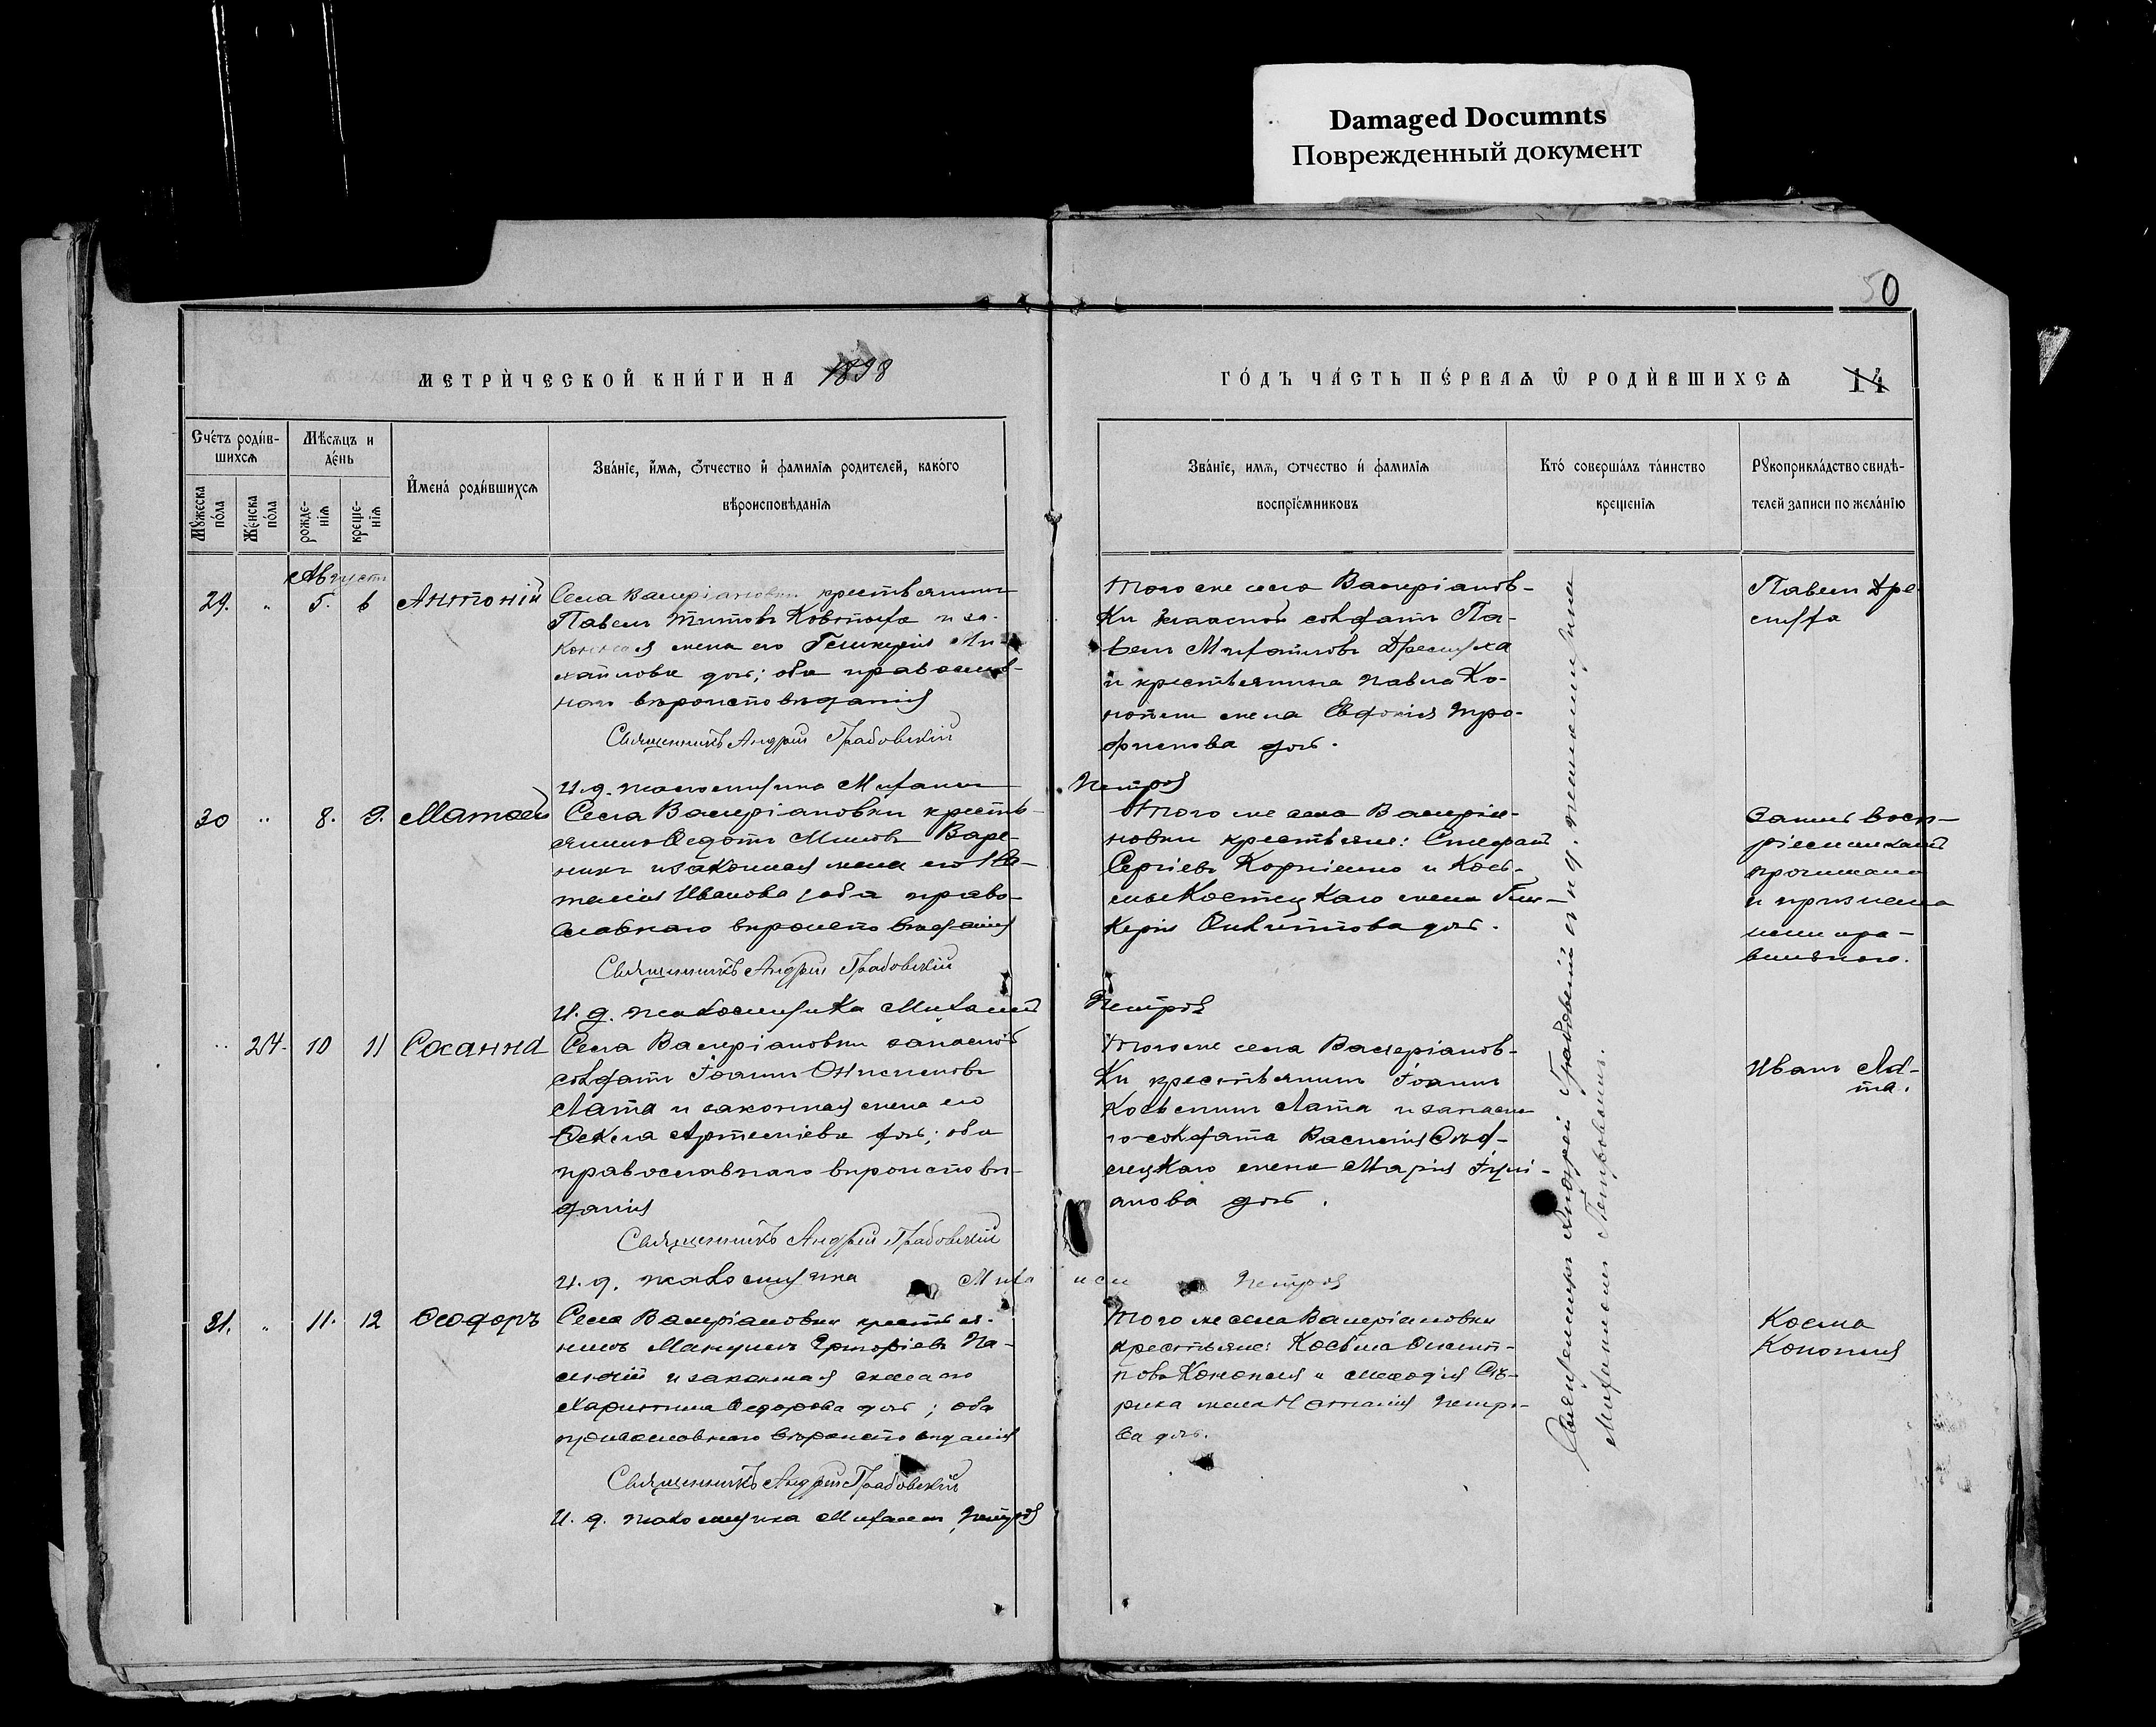 Damaged Documnts
Поврежденный документ
50
МЕТРИ́ЧЕСКОЙ КНИ́ГИ НА 1898
ГО́ДЪ ЧА́СТЬ ПЕ́РВАѦ Ѡ҆ РОДИ́ВШИХСѦ 14
Сче́тъ роди́в-
шихсѧ
Мꙋ́жеска по́ла
Же́нска по́ла
Мѣ́сѧцъ и де́нь
рожде-
нїѧ
креще-
нїѧ
И҆мена́ роди́вшихсѧ
Зва́нїе, и҆́мѧ, ѻ҆́тчество и҆ фами́лїѧ роди́телей, како́го
вѣроисповѣ́данїѧ
Зва́нїе, имѧ, ѻтчество и҆ фами́лїѧ
воспрїе́мниковъ
Кто̀ соверша́лъ та́инство
креще́нїѧ
Рꙋкоприкла́дство свидѣ́-
телей записи по жела́нїю
Августъ
29. " 5. 6 Антоній
Села Валеріановки крестьянинъ
Павелъ Титовъ и за-
конная жена его Гликерія Ми-
хайлова дочь; оба православ-
наго вѣроисповѣданія
Священникъ Андрей Грабовскій
И. д. псаломщика Михаилъ Петровъ
Того же села Валеріанов-
ки запасной солдатъ Па-
велъ Михайловъ
и крестьянина Павла Ко-
нопли жена Евдокія Тро-
фимова дочь.
Павелъ Дре-
30 " 8. 9. Матѳей
Села Валеріановки кресть-
янинъ Ѳедотъ Варе-
никъ и законная жена его На-
талія Иванова, оба право-
славнаго вѣроисповѣданія
Священникъ Андрей Грабовскій
И. д. псаломщика Михаилъ Петровъ
Того же села Валеріа-
новки крестьяне: Стефанъ
Сергіевъ Корніенко и Кось-
мы Костецкаго жена Гли-
керія дочь.
Запись восп-
ріемниками
прочитана
и признана
ими пра-
вильною.
" 24. 10 11 Сосанна
Села Валеріановки запасной
солдатъ Іоаннъ Онисимовъ
Лата и законная жена его
Ѳекла Артеміева дочь; оба
православнаго вѣроисповѣ-
данія
Священникъ Андрей Грабовскій
И. д. псаломщика Михаилъ Петровъ
Того же села Валеріанов-
ки крестьянинъ Іоаннъ
Косьминъ Лата и запасна-
го солдата Василія
жена Марія Іулі-
анова дочь.
Иванъ Ла-
та.
31. " 11. 12 Ѳеодоръ
Села Валеріановки крестья-
нинъ Мануилъ Григоріевъ
и законная жена его
Харитина Ѳедорова дочь; оба
православнаго вѣроисповѣданія
Священникъ Андрей Грабовскій
И. д. псаломщика Михаилъ Петровъ
Того же села Валеріановки
крестьяне: Косьма
Конопля и Меѳодія
жена Наталія Петро-
ва дочь.
Косма
Конопля
Священникъ Андрей Грабовскій и и. д. псаломщика
Михаиломъ Петровымъ.